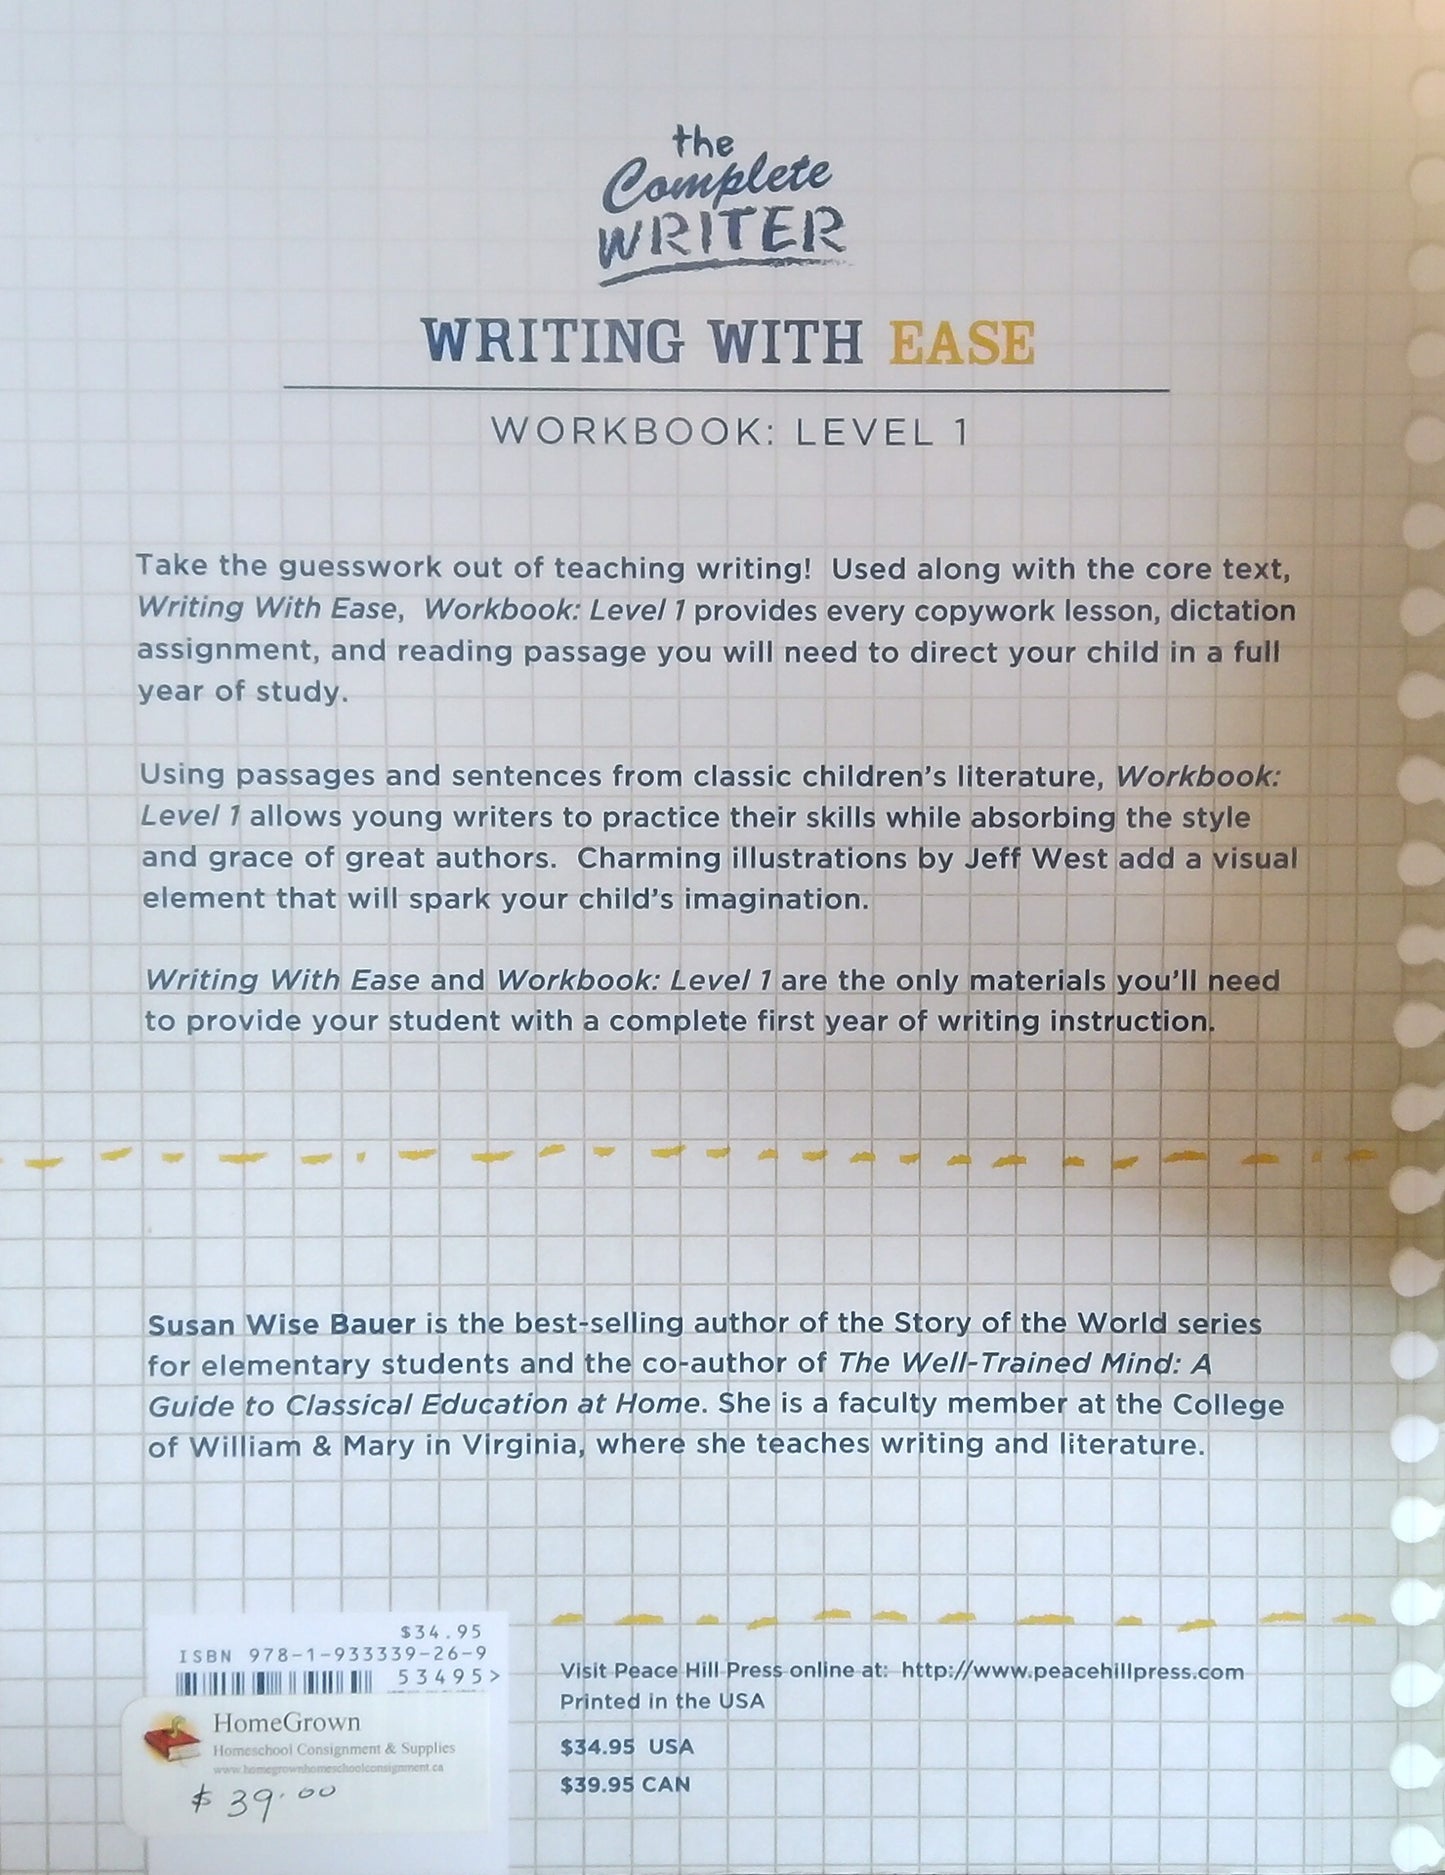 the
Complete
WRITER
WRITING WITH EASE
WORKBOOK: LEVEL 1
Take the guesswork out of teaching writing! Used along with the core text,
Writing With Ease, Workbook: Level 1 provides every copywork lesson, dictation
assignment, and reading passage you will need to direct your child in a full
year of study.
Using passages and sentences from classic children's literature, Workbook:
Level 1 allows young writers to practice their skills while absorbing the style
and grace of great authors. Charming illustrations by Jeff West add a visual
element that will spark your child's imagination.
Writing With Ease and Workbook: Level 1 are the only materials you'll need
to provide your student with a complete first year of writing instruction.
Susan Wise Bauer is the best-selling author of the Story of the World series
for elementary students and the co-author of The Well-Trained Mind: A
Guide to Classical Education at Home. She is a faculty member at the College
of William & Mary in Virginia, where she teaches writing and literature.
$34.95
ISBN 978-1-933339-26-9
53495>
HomeGrown
Homeschool Consignment & Supplies
www.homegrownhomeschoolconsignment.ca
$39.00
Visit Peace Hill Press online at: http://www.peacehillpress.com
Printed in the USA
$34.95 USA
$39.95 CAN